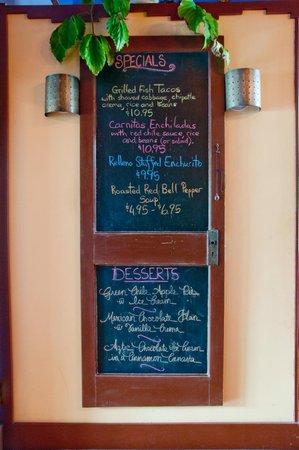 SPECIALS
Grilled Fish Tacos
with shaved cabbage, chipotle
crema, rice and beans
$10.95
Carnitas Enchiladas
with red chile sauce, rice
and beans (or salad).
$10.95
Relleno Stuffed Enchurito
$9.95
Roasted Red Bell Pepper
Soup
$4.95 - $6.95
DESSERTS
Green Chile Apple
w Ice Cream
Mexican Chocolate
w Vanilla Crema
Aztec Chocolate Ice Cream
in a Cinnamon Canasta